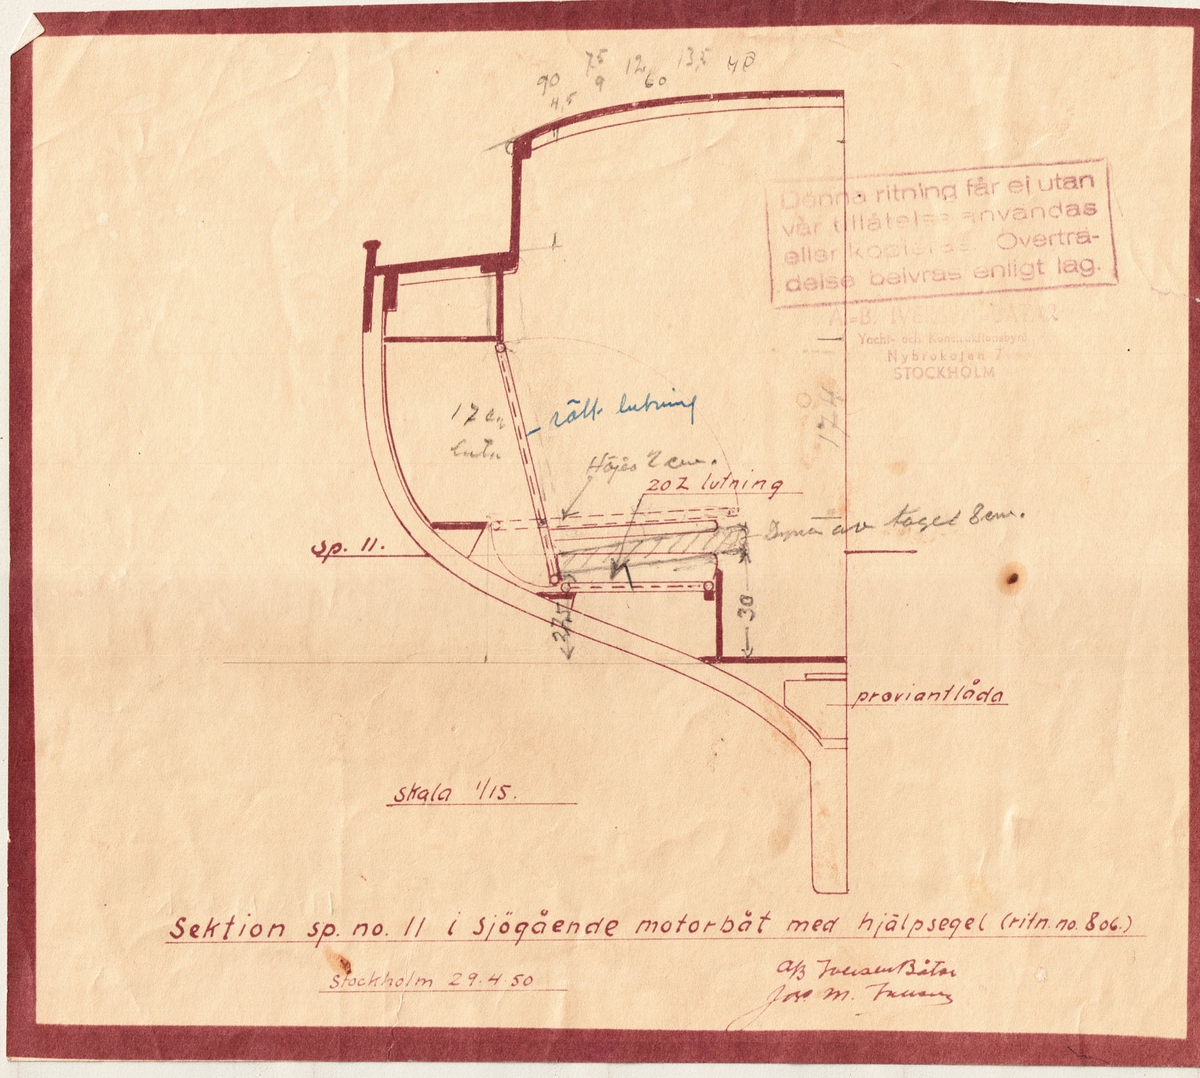 90 7,5 12 13,5 HP
4,5 9 60
Denna ritning får ej utan
vår tillåtelse användas
eller kopieras. Överträ-
delse beivras enligt lag.
A.-B. IVERSEN BÅTAR
Yacht- och Konstruktionsbyrå
Nybrokajen 7
STOCKHOLM
174
rätt lutning
17 cm
luta
Höjes 2 cm.
20% lutning
Dyna av tagel 8 cm.
sp. 11.
30
proviantlåda
Skala 1/15.
Sektion sp. no. 11 i Sjögående motorbåt med hjälpsegel (ritn. no. 806.)
Stockholm 29.4.50
AB Iversen Båtar
M. Iversen